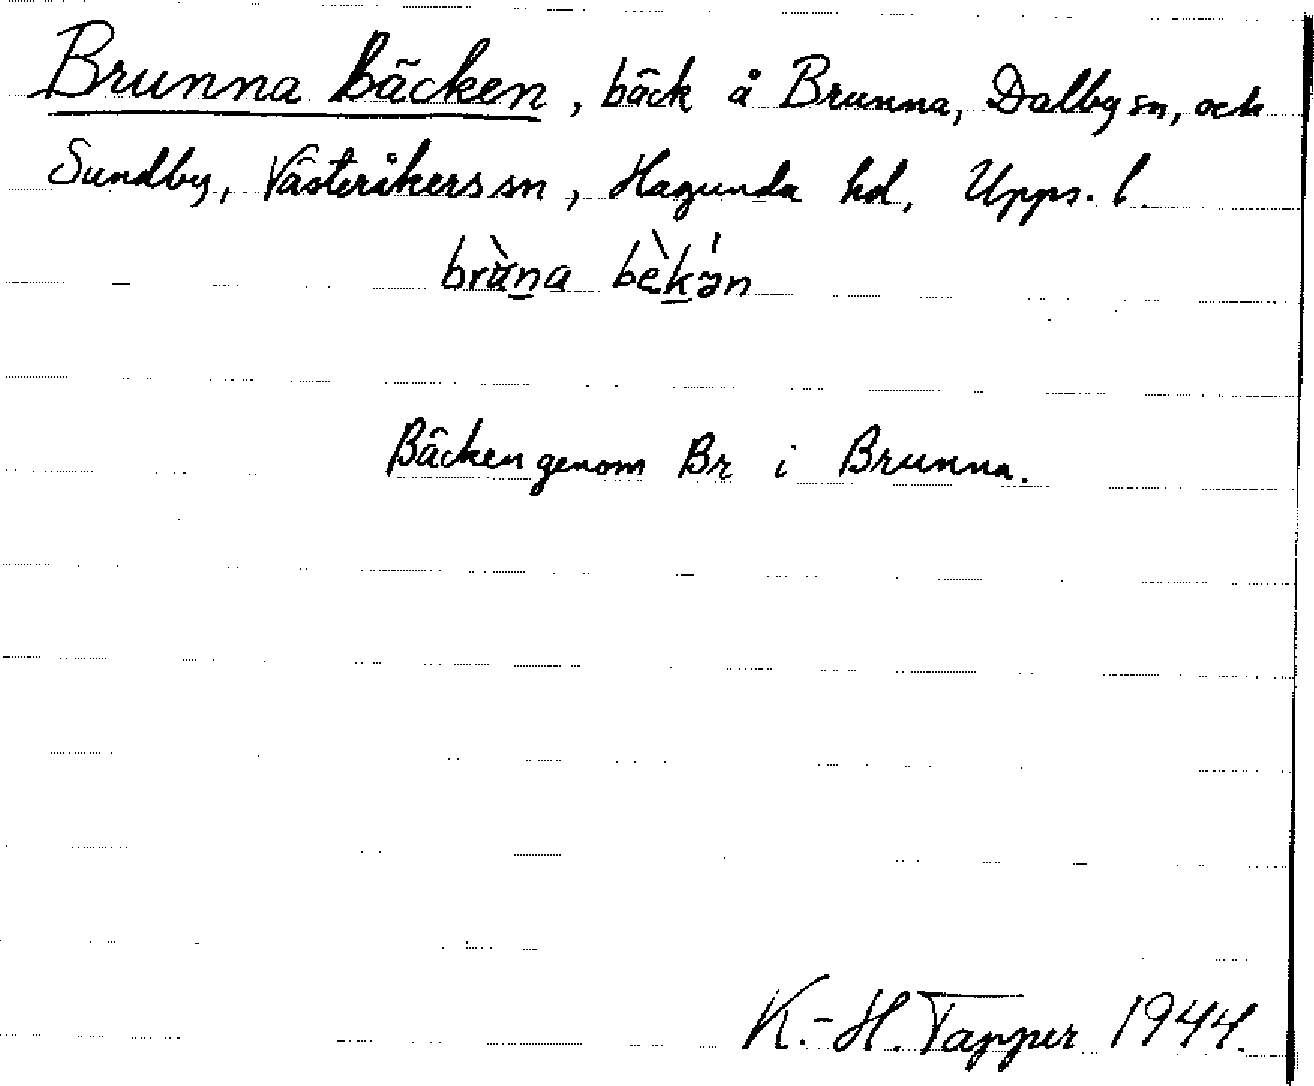 Brunna Bäcken, bäck å Brunna, Dalby sn, och
Sundby, Västeråkers sn, Hagunda hd, Upps. l.
brùna bèkən
Bäcken genom Br i Brunna.
K.-H. Tapper 1944.